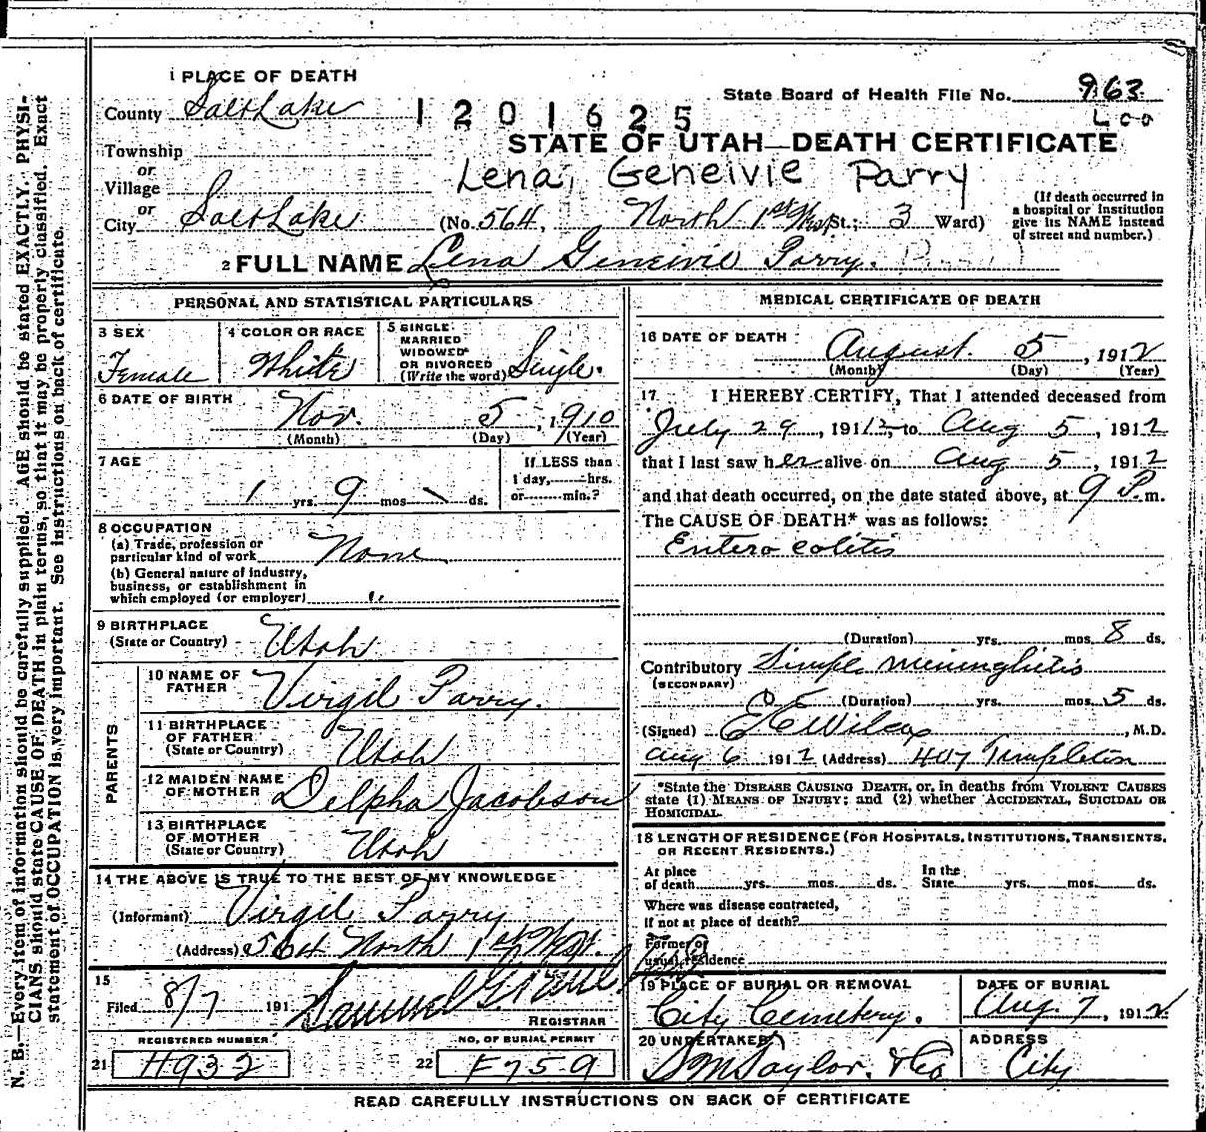 1 PLACE OF DEATH
County Salt Lake
1201625
State Board of Health File No. 963
Township
or
Village
or
City Salt Lake
STATE OF UTAH—DEATH CERTIFICATE
Lena, Geneivie Parry
(No. 564, North 1st West St.; 3 Ward)
(If death occurred in
a hospital or institution
give its NAME instead
of street and number.)
2 FULL NAME Lena Geneivie Parry.
PERSONAL AND STATISTICAL PARTICULARS
3 SEX
Female
4 COLOR OR RACE
White
5 SINGLE
MARRIED
WIDOWED
OR DIVORCED
(Write the word) Single.
6 DATE OF BIRTH
Nov. 5, 1910
(Month) (Day) (Year)
7 AGE
1 yrs. 9 mos ds.
If LESS than
1 day, hrs.
or min.?
8 OCCUPATION
(a) Trade, profession or
particular kind of work None
(b) General nature of industry,
business, or establishment in
which employed (or employer) "
9 BIRTHPLACE
(State or Country) Utah
PARENTS
10 NAME OF
FATHER Virgil Parry.
11 BIRTHPLACE
OF FATHER
(State or Country) Utah
12 MAIDEN NAME
OF MOTHER Delpha Jacobson
13 BIRTHPLACE
OF MOTHER
(State or Country) Utah
14 THE ABOVE IS TRUE TO THE BEST OF MY KNOWLEDGE
(Informant) Virgil Parry
(Address) 564 North 1st West.
15
Filed 8/7 191
REGISTRAR
REGISTERED NUMBER
21 H932
NO. OF BURIAL PERMIT
22 F759
MEDICAL CERTIFICATE OF DEATH
16 DATE OF DEATH
August. 5, 1912
(Month) (Day) (Year)
17 I HEREBY CERTIFY, That I attended deceased from
July 29, 1912, to Aug 5, 1912
that I last saw her alive on Aug 5, 1912
and that death occurred, on the date stated above, at 9 P.m.
The CAUSE OF DEATH* was as follows:
Entero colitis
(Duration) yrs. mos. 8 ds.
Contributory Simple meninghitis
(SECONDARY)
(Duration) yrs. mos. 5 ds.
(Signed) E E Wilcox, M.D.
Aug 6 1912 (Address) 407 Templeton
*State the DISEASE CAUSING DEATH, or, in deaths from VIOLENT CAUSES
state (1) MEANS OF INJURY; and (2) whether ACCIDENTAL, SUICIDAL OR
HOMICIDAL.
18 LENGTH OF RESIDENCE (FOR HOSPITALS, INSTITUTIONS, TRANSIENTS,
OR RECENT RESIDENTS.)
At place
of death yrs. mos. ds.
In the
State yrs. mos. ds.
Where was disease contracted,
if not at place of death?
Former or
usual residence
19 PLACE OF BURIAL OR REMOVAL
City Cemetery.
DATE OF BURIAL
Aug. 7, 1912
20 UNDERTAKER
S M Taylor. & Co
ADDRESS
City
READ CAREFULLY INSTRUCTIONS ON BACK OF CERTIFICATE
N. B.—Every item of information should be carefully supplied. AGE should be stated EXACTLY. PHYSI-
CIANS should state CAUSE OF DEATH in plain terms, so that it may be properly classified. Exact
statement of OCCUPATION is very important. See instructions on back of certificate.